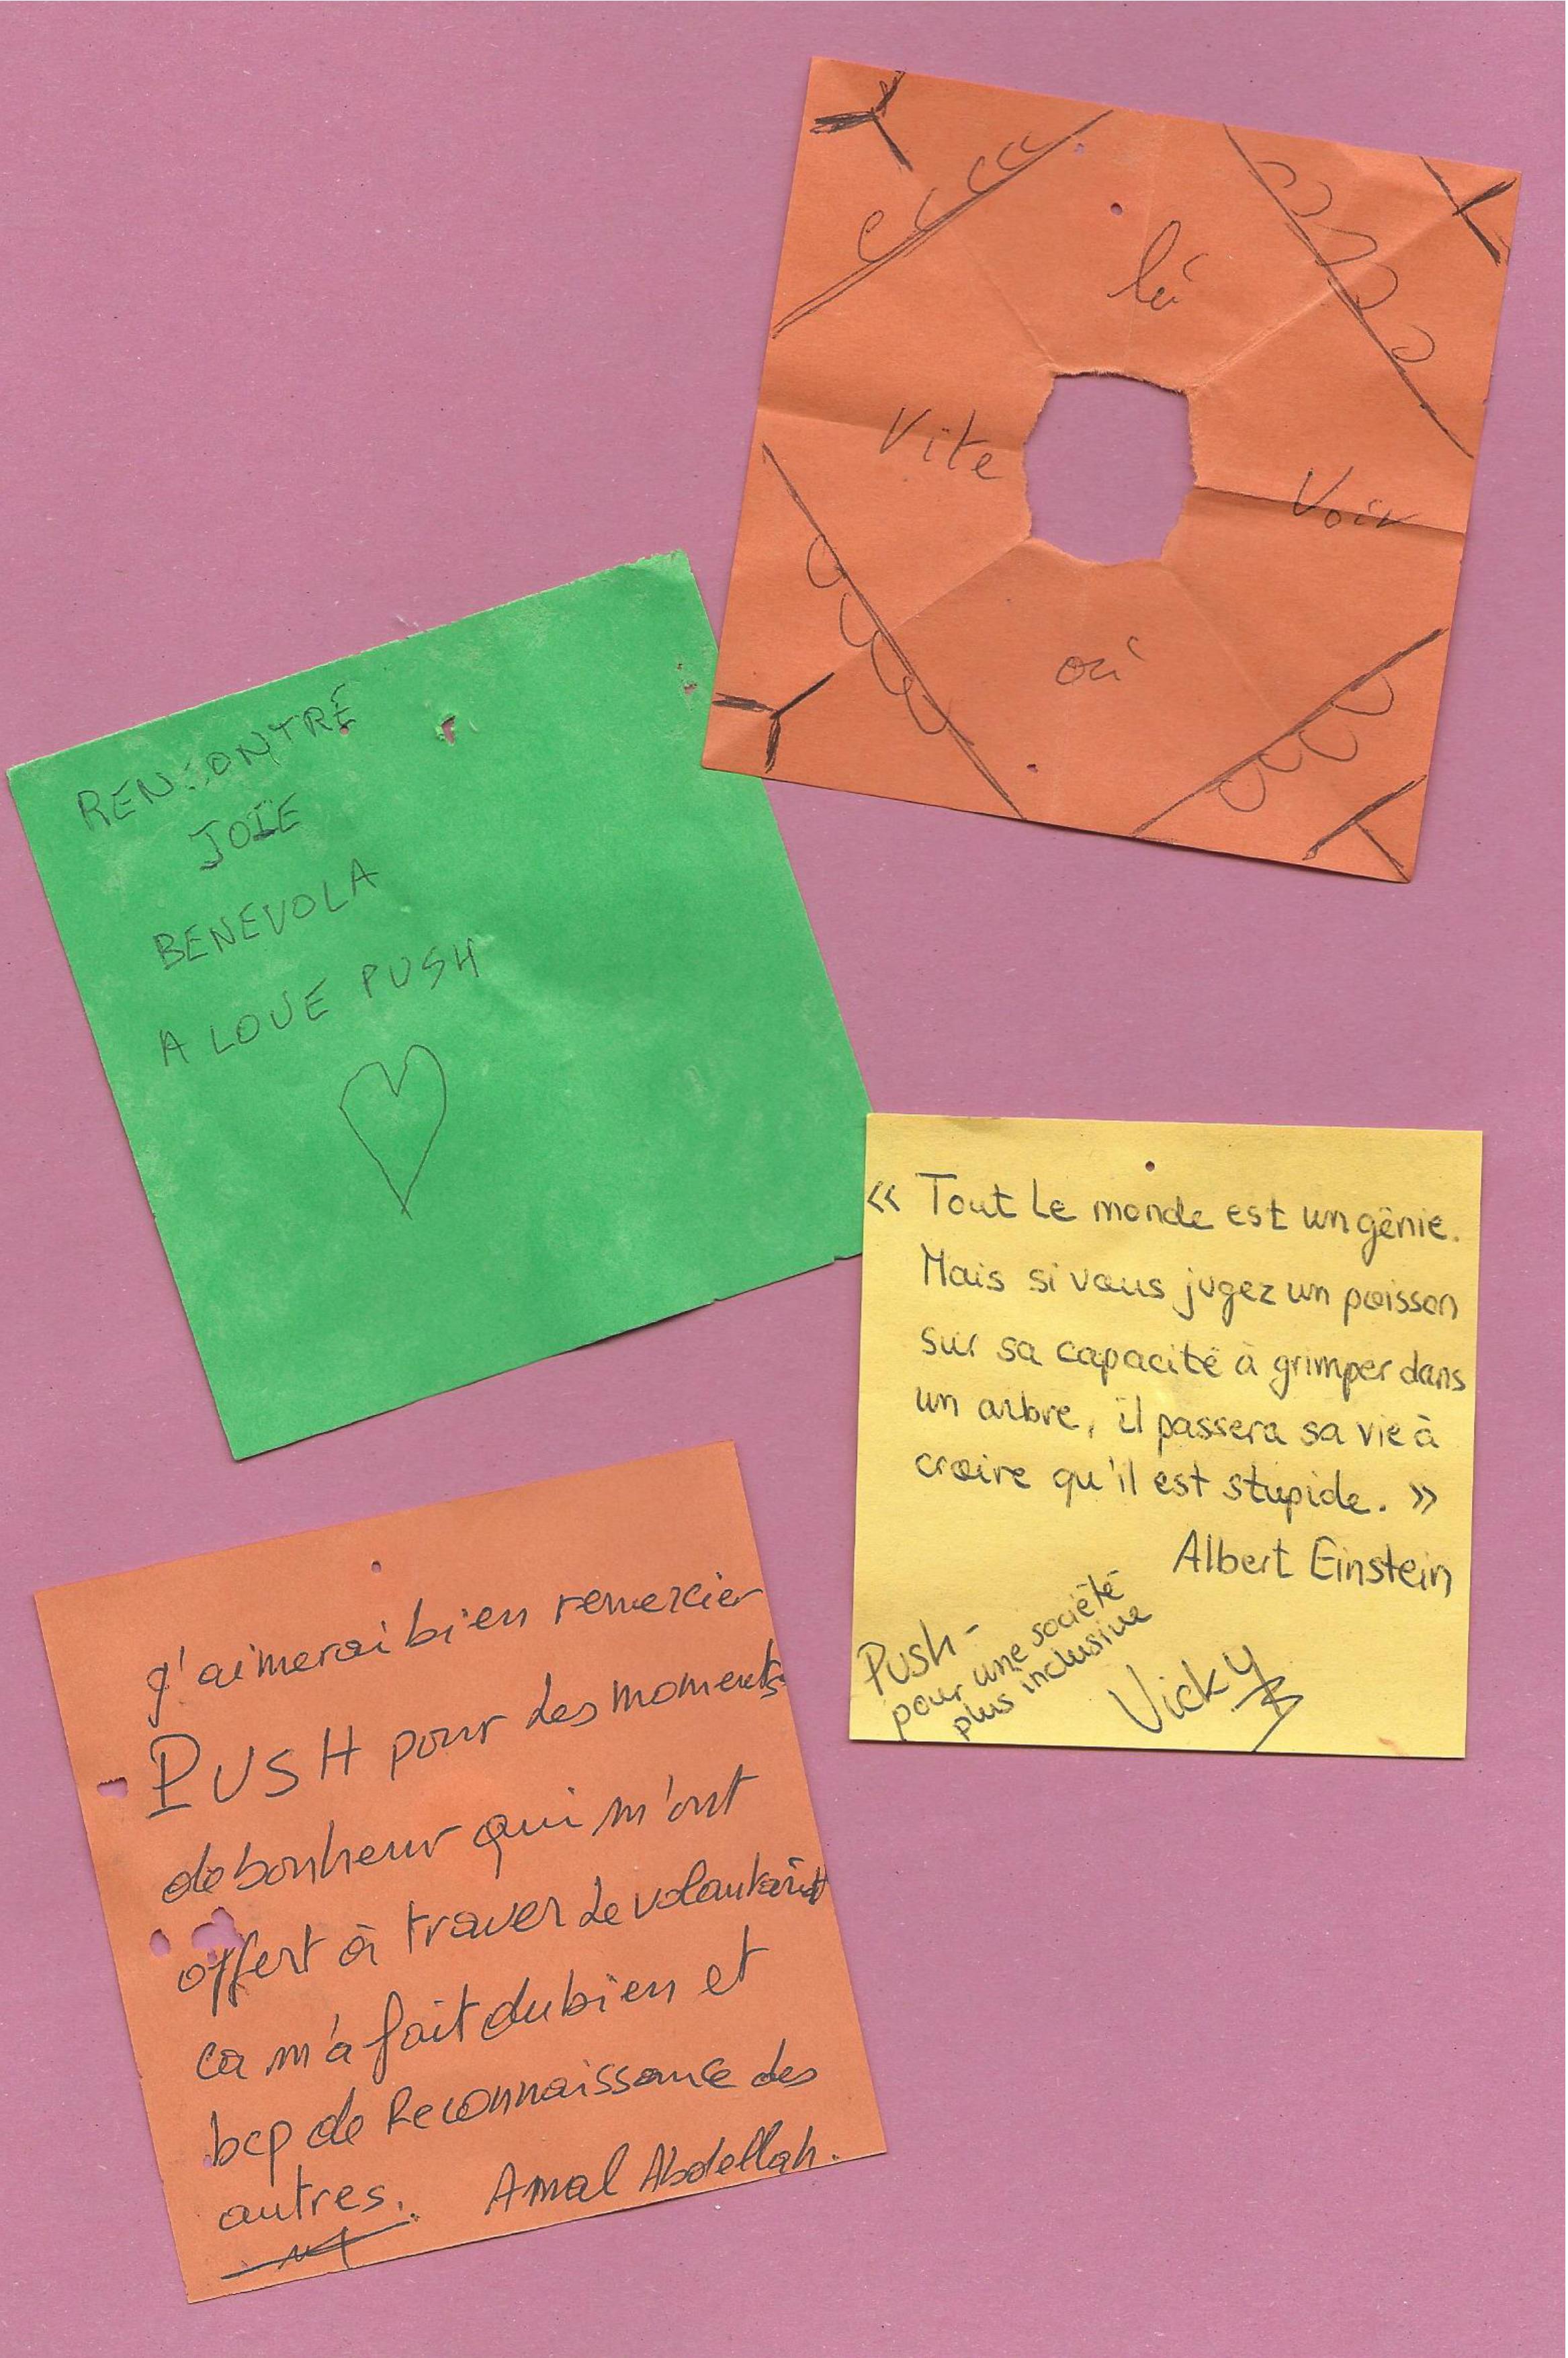 là
Vite
Voir
où
RENCONTRE
JOIE
BENEVOLA
A LOVE PUSH
« Tout le monde est un génie.
Mais si vous jugez un poisson
sur sa capacité à grimper dans
un arbre, il passera sa vie à
croire qu'il est stupide. »
Albert Einstein
Push -
pour une société
plus inclusive
Vicky
J'aimerai bien remercier
PUSH pour des moments
de bonheur qui m'ont
offert à traver le volontariat
ca m'a fait du bien et
bcp de Reconnaissance des
autres. Amal Abdellah.